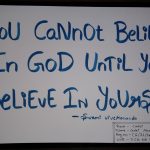 YOU CANNOT Belie
In GOD UNTIL YO
BeLIEVE In YOURS
- Swami Vivekananda